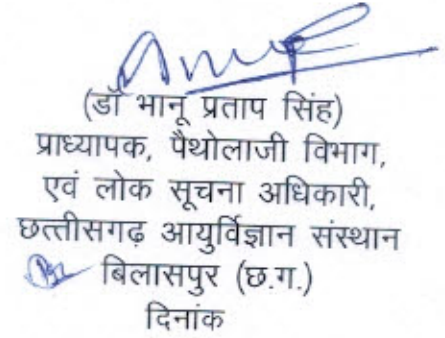 (डॉ भानू प्रताप सिंह)
प्राध्यापक, पैथोलाजी विभाग,
एवं लोक सूचना अधिकारी,
छत्तीसगढ़ आयुर्विज्ञान संस्थान
बिलासपुर (छ.ग.)
दिनांक